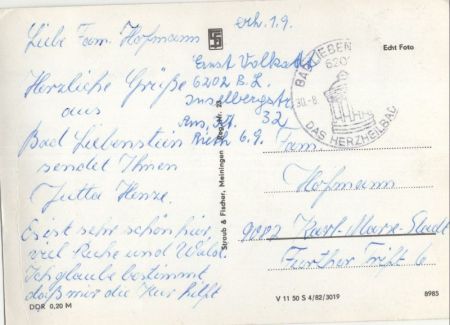 Liebe Fam. Hofmann
erh. 1.9.
Ernst Volkstadt
6202 B.L.
Inselbergstr.
32
6.9.
Herzliche Grüße
aus
Bad Liebenstein
sendet Ihnen
Jutta Henze.
Es ist sehr schön hier,
viel Ruhe und Wald.
Ich glaube bestimmt
daß mir die Kur hilft
DDR 0,20 M
Straub & Fischer, Meiningen
BAD LIEBEN
620
30.-8.
DAS HERZHEILBAD
Echt Foto
Fam.
Hofmann
Karl-Marx-Stadt
Further Trift 6
V 11 50 S 4/82/3019
8985